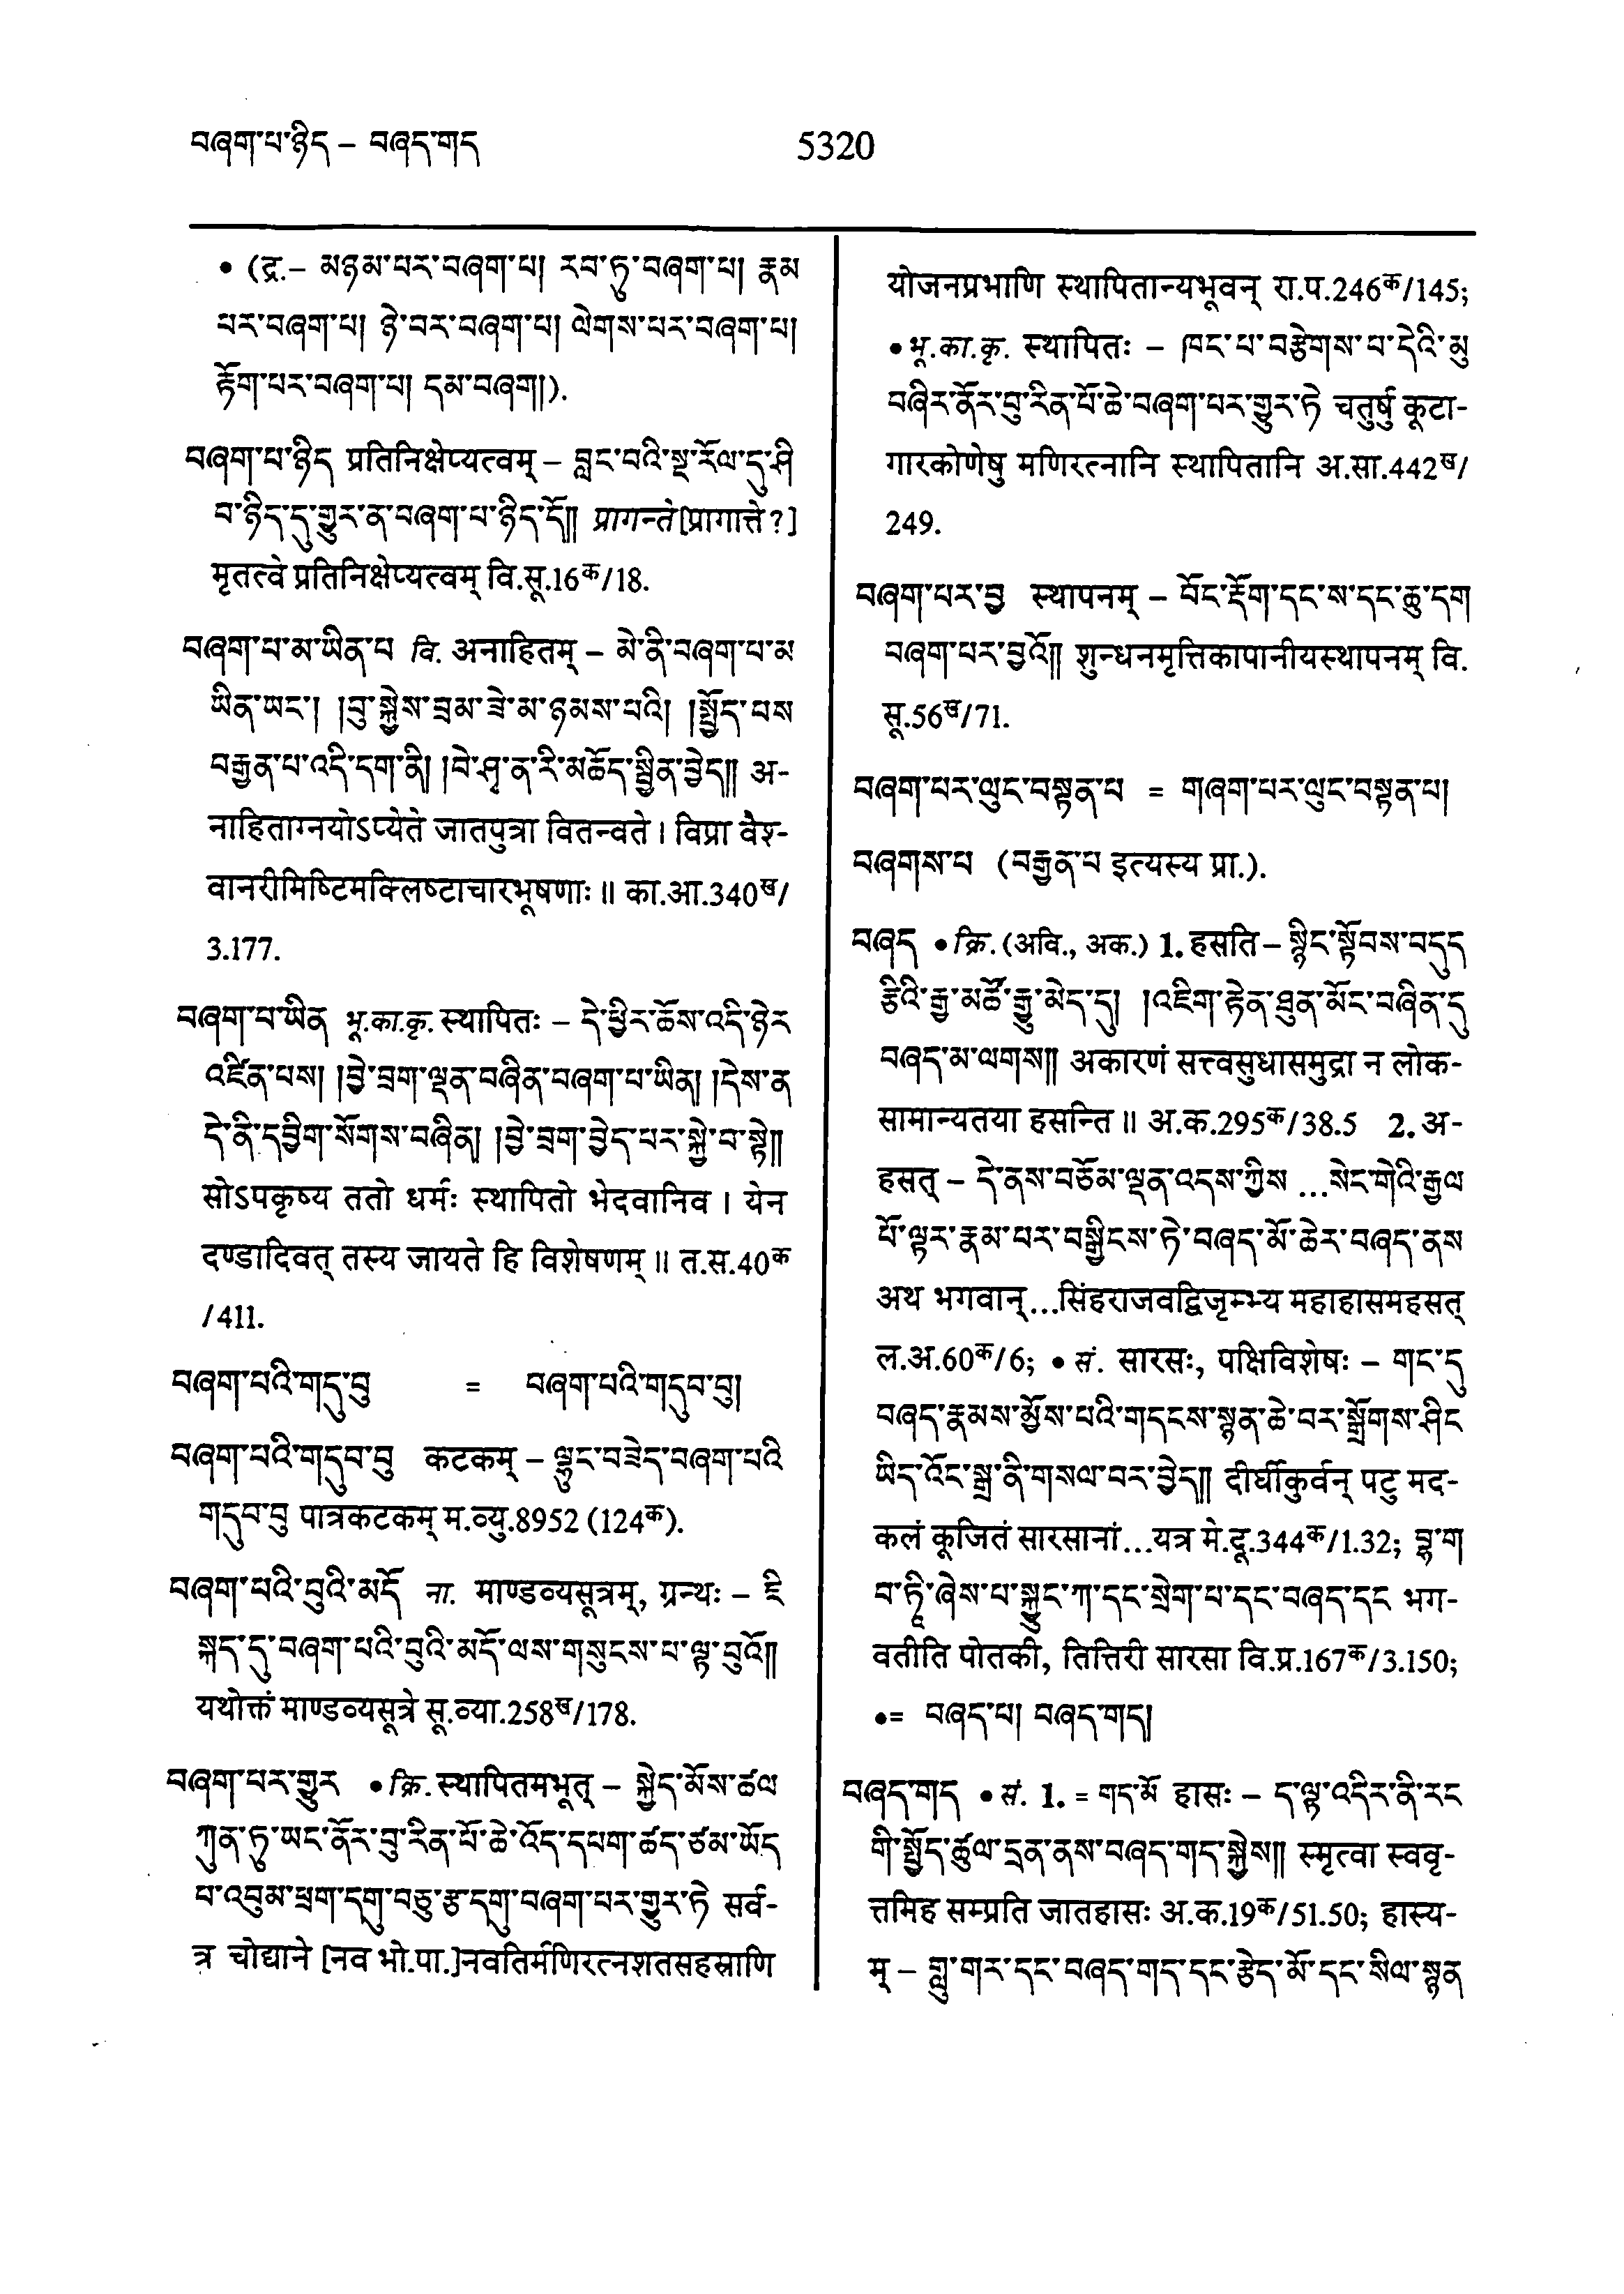 བཞག་པ་ཉིད – བཞད་གད
5320
• (द्र.– མཉམ་པར་བཞག་པ། རབ་ཏུ་བཞག་པ། རྣམ
པར་བཞག་པ། ཉེ་བར་བཞག་པ། ལེགས་པར་བཞག་པ།
རྟོག་པར་བཞག་པ། དམ་བཞག།).
བཞག་པ་ཉིད प्रतिनिक्षेप्यत्वम् – བླང་བའི་སྔ་རོལ་དུ་ཤི
བ་ཉིད་དུ་གྱུར་ན་བཞག་པ་ཉིད་དོ།། प्रागन्ते[प्रागात्ते?]
मृतत्वे प्रतिनिक्षेप्यत्वम् वि.सू.16क/18.
བཞག་པ་མ་ཡིན་པ वि. अनाहितम् – མེ་ནི་བཞག་པ་མ
ཡིན་ཡང་། །བུ་སྐྱེས་བྲམ་ཟེ་མ་ཉམས་པའི། །སྤྱོད་པས
བརྒྱན་པ་འདི་དག་ནི། །བེ་ཤྭ་ན་རི་མཆོད་སྦྱིན་བྱེད།། अ-
नाहिताग्नयोऽप्येते जातपुत्रा वितन्वते । विप्रा वैश्-
वानरीमिष्टिमक्लिष्टाचारभूषणाः ॥ का.आ.340ख/
3.177.
བཞག་པ་ཡིན भू.का.कृ. स्थापितः – དེ་ཕྱིར་ཆོས་འདི་ཉེར
འཛིན་པས། །བྱེ་བྲག་ལྡན་བཞིན་བཞག་པ་ཡིན། །དེས་ན
དེ་ནི་དབྱིག་སོགས་བཞིན། །བྱེ་བྲག་བྱེད་པར་སྐྱེ་བ་སྟེ།།
सोऽपकृष्य ततो धर्मः स्थापितो भेदवानिव । येन
दण्डादिवत् तस्य जायते हि विशेषणम् ॥ त.स.40क
/411.
བཞག་པའི་གདུ་བུ = བཞག་པའི་གདུབ་བུ།
བཞག་པའི་གདུབ་བུ कटकम् – ལྷུང་བཟེད་བཞག་པའི
གདུབ་བུ पात्रकटकम् म.व्यु.8952 (124क).
བཞག་པའི་བུའི་མདོ ना. माण्डव्यसूत्रम्, ग्रन्थः – ཇི
སྐད་དུ་བཞག་པའི་བུའི་མདོ་ལས་གསུངས་པ་ལྟ་བུའོ།།
यथोक्तं माण्डव्यसूत्रे सू.व्या.258ख/178.
བཞག་པར་གྱུར • क्रि. स्थापितमभूत् – སྐྱེད་མོས་ཚལ
ཀུན་ཏུ་ཡང་ནོར་བུ་རིན་པོ་ཆེ་འོད་དཔག་ཚད་ཙམ་ཡོད
པ་འབུམ་ཕྲག་དགུ་བཅུ་རྩ་དགུ་བཞག་པར་གྱུར་ཏེ सर्व-
त्र चोद्याने [नव भो.पा.]नवतिर्मणिरत्नशतसहस्राणि
योजनप्रभाणि स्थापितान्यभूवन् रा.प.246क/145;
• भू.का.कृ. स्थापितः – ཁང་པ་བརྩེགས་པ་དེའི་མུ
བཞིར་ནོར་བུ་རིན་པོ་ཆེ་བཞག་པར་གྱུར་ཏེ चतुर्षु कूटा-
गारकोणेषु मणिरत्नानि स्थापितानि अ.सा.442ख/
249.
བཞག་པར་བྱ स्थापनम् – བོང་རྡོག་དང་ས་དང་ཆུ་དག
བཞག་པར་བྱའོ།། शुन्धनमृत्तिकापानीयस्थापनम् वि.
सू.56ख/71.
བཞག་པར་ལུང་བསྟན་པ = གཞག་པར་ལུང་བསྟན་པ།
བཞགས་པ (བརྒྱན་པ इत्यस्य प्रा.).
བཞད • क्रि. (अवि., अक.) 1. हसति – སྙིང་སྟོབས་བདུད
རྩིའི་རྒྱ་མཚོ་རྒྱུ་མེད་དུ། །འཇིག་རྟེན་ཐུན་མོང་བཞིན་དུ
བཞད་མ་ལགས།། अकारणं सत्त्वसुधासमुद्रा न लोक-
सामान्यतया हसन्ति ॥ अ.क.295क/38.5 2. अ-
हसत् – དེ་ནས་བཅོམ་ལྡན་འདས་ཀྱིས ...སེང་གེའི་རྒྱལ
པོ་ལྟར་རྣམ་པར་བསྒྱིངས་ཏེ་བཞད་མོ་ཆེར་བཞད་ནས
अथ भगवान्...सिंहराजवद्विजृम्भ्य महाहासमहसत्
ल.अ.60क/6; • सं. सारसः, पक्षिविशेषः – གང་དུ
བཞད་རྣམས་མྱོས་པའི་གདངས་སྙན་ཆེ་བར་སྒྲོགས་ཤིང
ཡིད་འོང་སྒྲ་ནི་གསལ་བར་བྱེད།། दीर्घीकुर्वन् पटु मद-
कलं कूजितं सारसानां...यत्र मे.दू.344क/1.32; བྷ་ག
བ་ཏཱི་ཞེས་པ་སྐྱུང་ཀ་དང་སྲེག་པ་དང་བཞད་དང भग-
वतीति पोतकी, तित्तिरी सारसा वि.प्र.167क/3.150;
•= བཞད་པ། བཞད་གད།
བཞད་གད • सं. 1. = གད་མོ हासः – ད་ལྟ་འདིར་ནི་རང
གི་སྤྱོད་ཚུལ་དྲན་ནས་བཞད་གད་སྐྱེས།། स्मृत्वा स्ववृ-
त्तमिह सम्प्रति जातहासः अ.क.19क/51.50; हास्य-
म् – གླུ་གར་དང་བཞད་གད་དང་རྩེད་མོ་དང་སིལ་སྙན